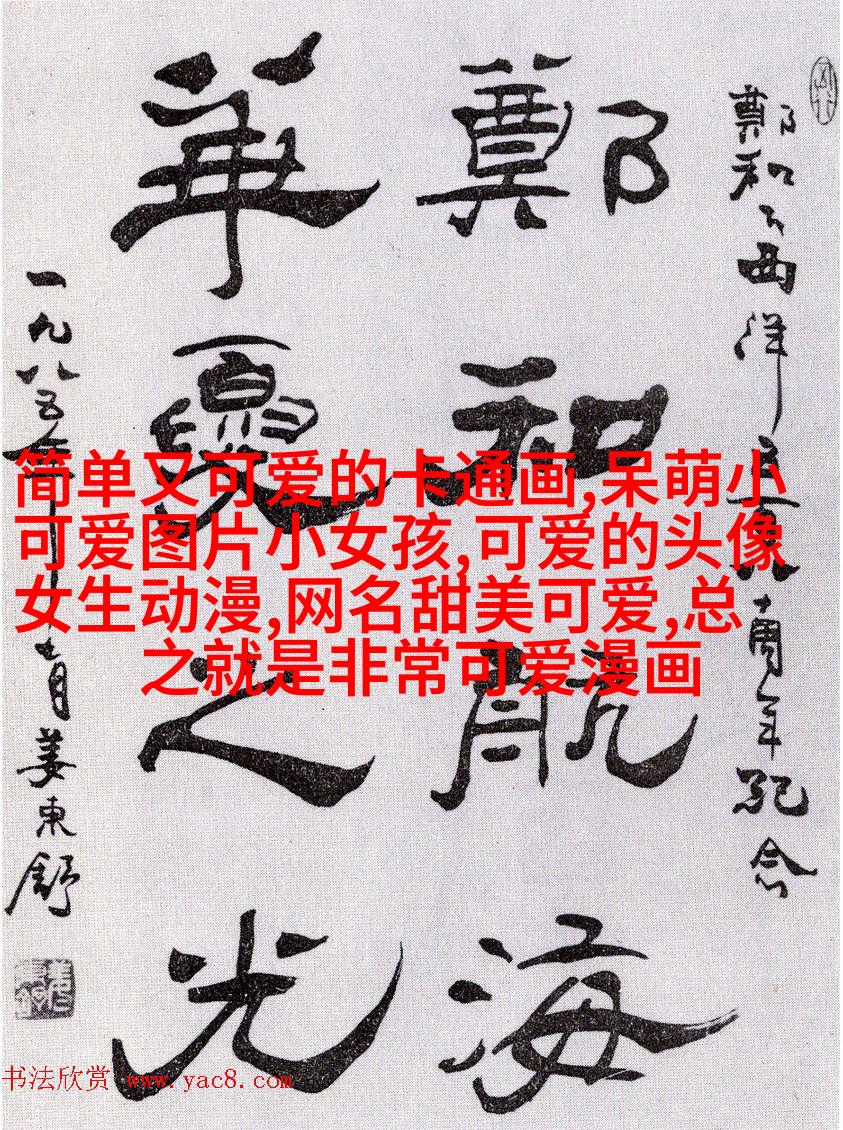 鄭和下西洋五百八十周年紀念
鄭和航海
華夏之光
一九八五年十一月姜東舒
简单又可爱的卡通画,呆萌小
可爱图片小女孩,可爱的头像
女生动漫,网名甜美可爱,总
之就是非常可爱漫画
书法欣赏 www.yac8.com